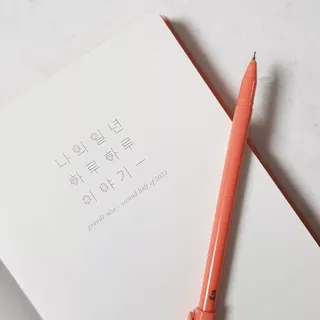 나의일년
하루하루
이야기 —
second half of 2023